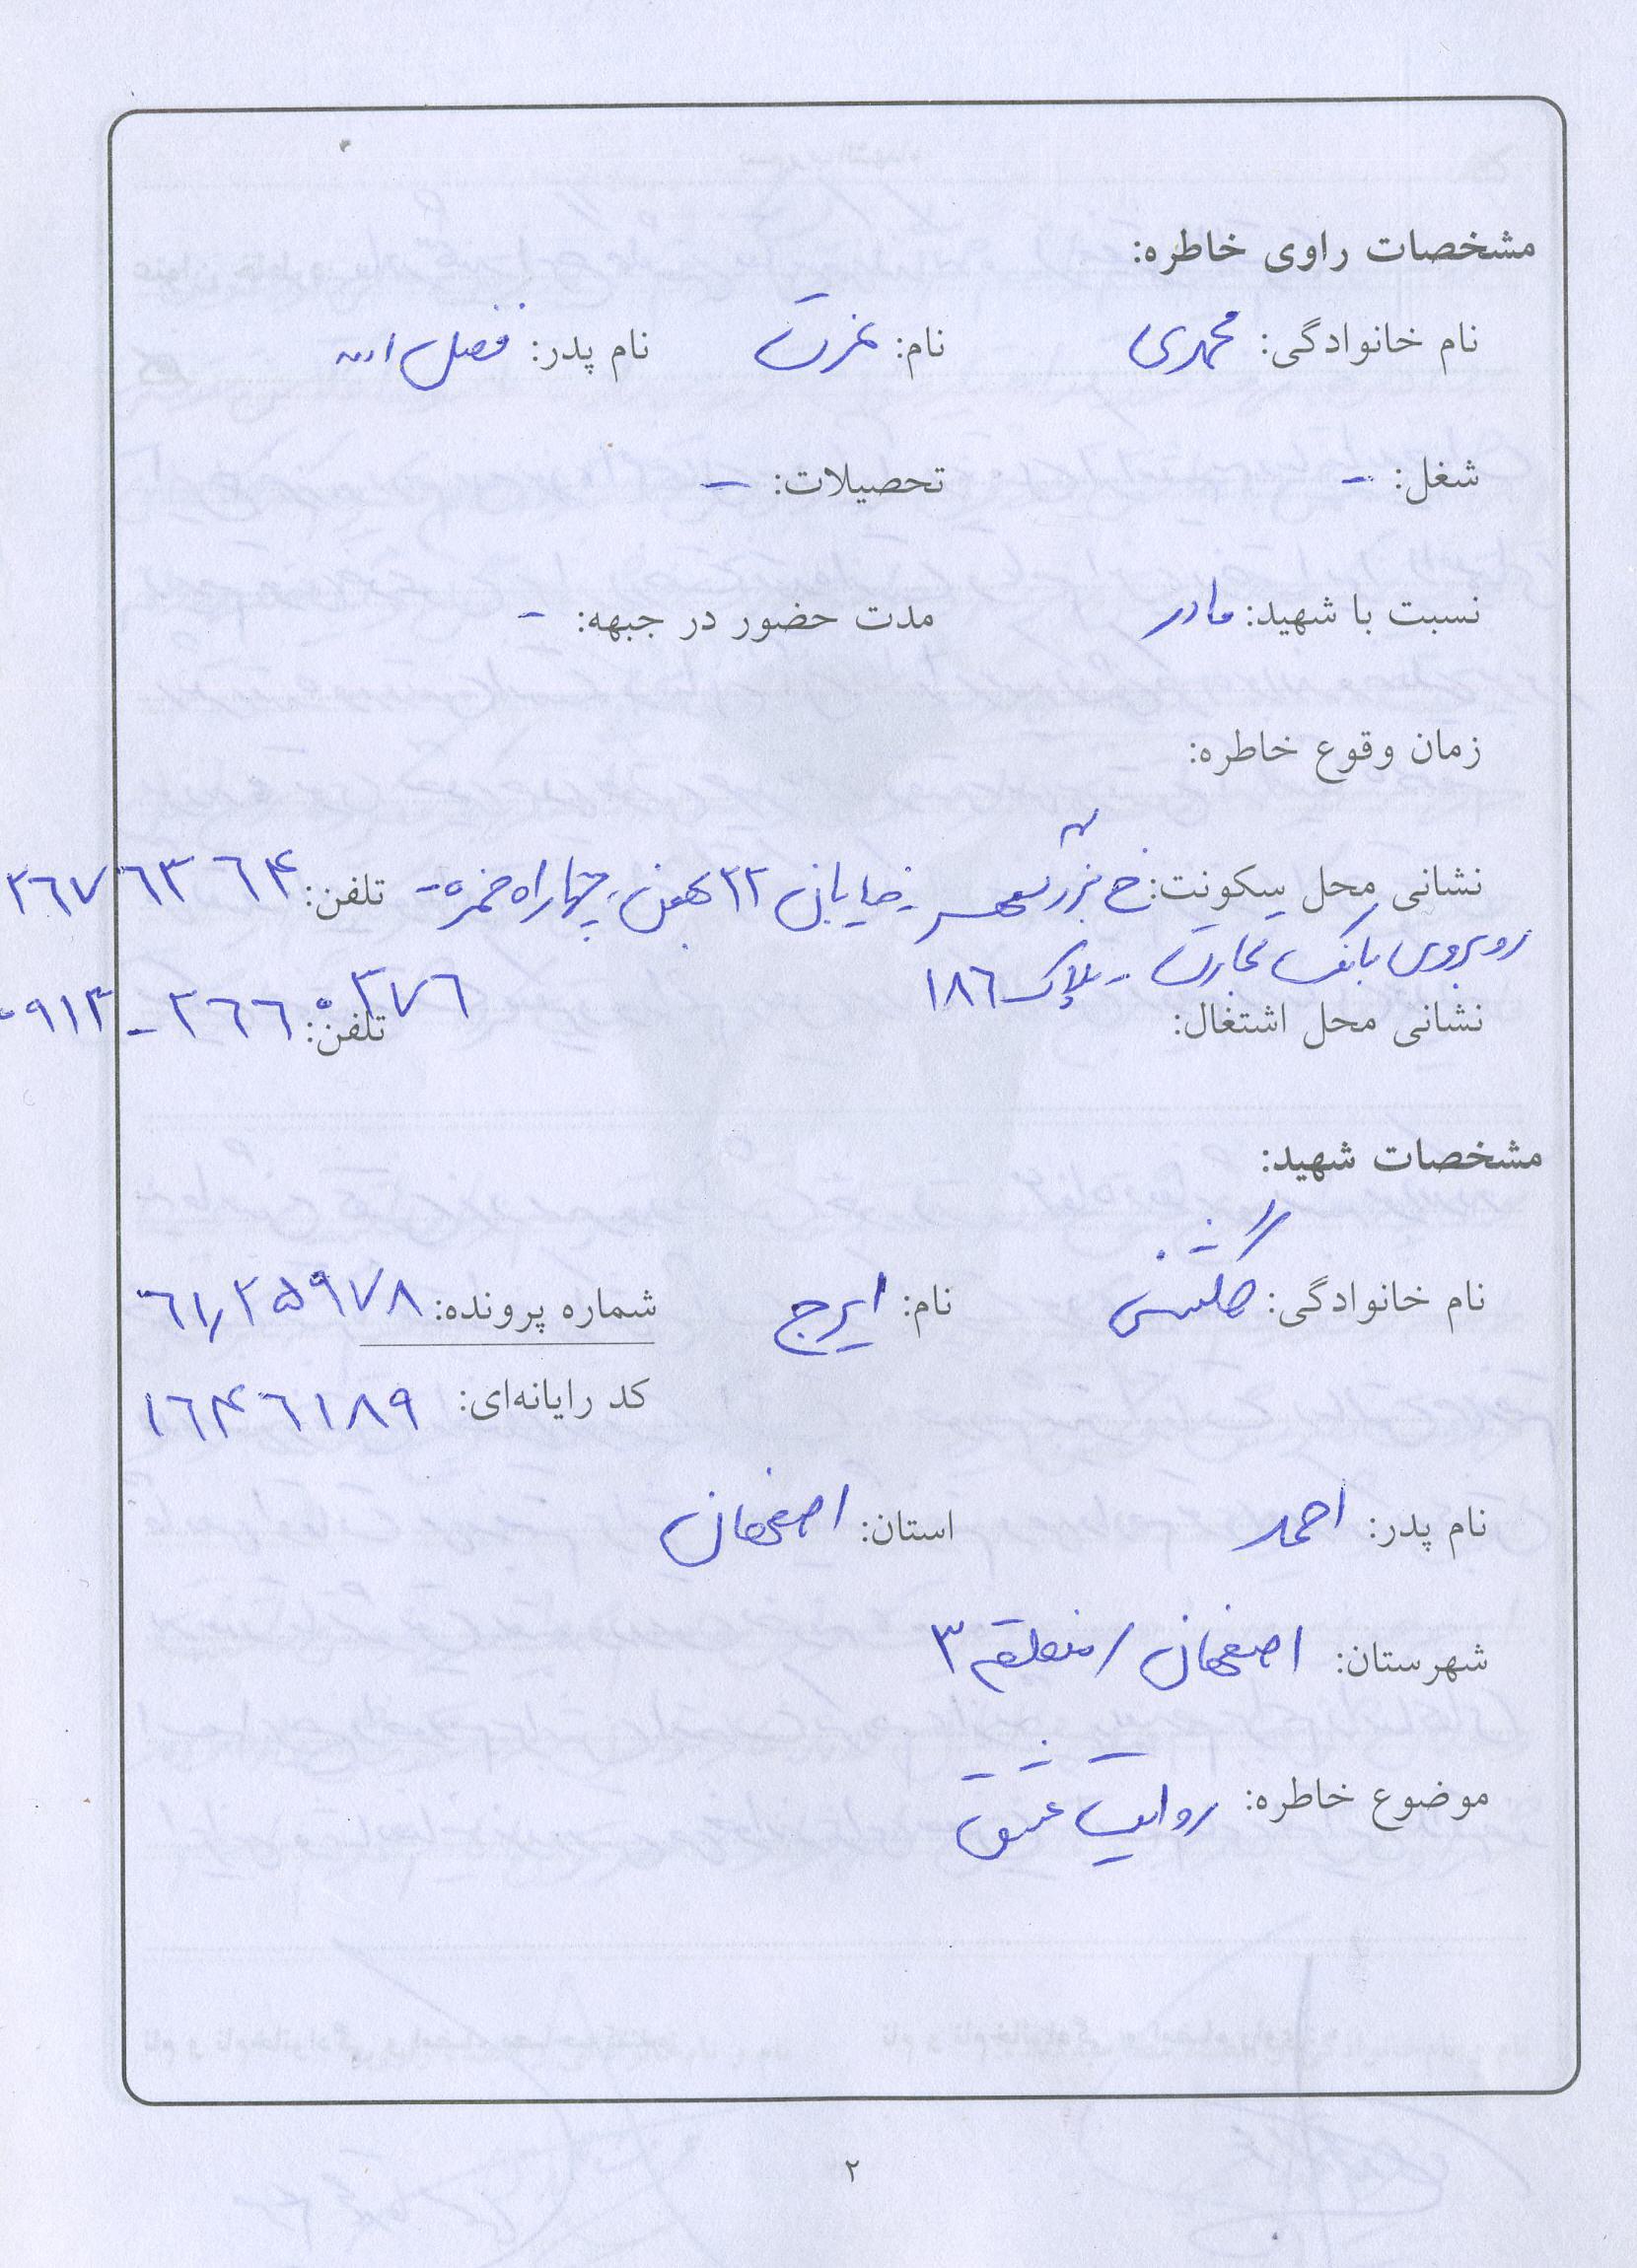 مشخصات راوی خاطره:
نام خانوادگی: محمدی نام: عزت نام پدر: فضل الله
شغل: - تحصیلات: -
نسبت با شهید: مادر مدت حضور در جبهه: -
زمان وقوع خاطره:
نشانی محل سکونت: خ بزرگمهر - خیابان ۲۲ بهمن - چهارراه حمزه - تلفن: ۲۶۷۶۳۶۴
روبروی بانک تجارت - پلاک ۱۸۶
نشانی محل اشتغال: تلفن: ۰۹۱۳-۲۶۶۰۲۷۶
مشخصات شهید:
نام خانوادگی: گلشنی نام: ایرج شماره پرونده: ۶۱/۲۵۹۷۸
کد رایانه‌ای: ۱۶۴۶۱۸۹
نام پدر: احمد استان: اصفهان
شهرستان: اصفهان / منطقه ۳
موضوع خاطره: روایت عشق
۲